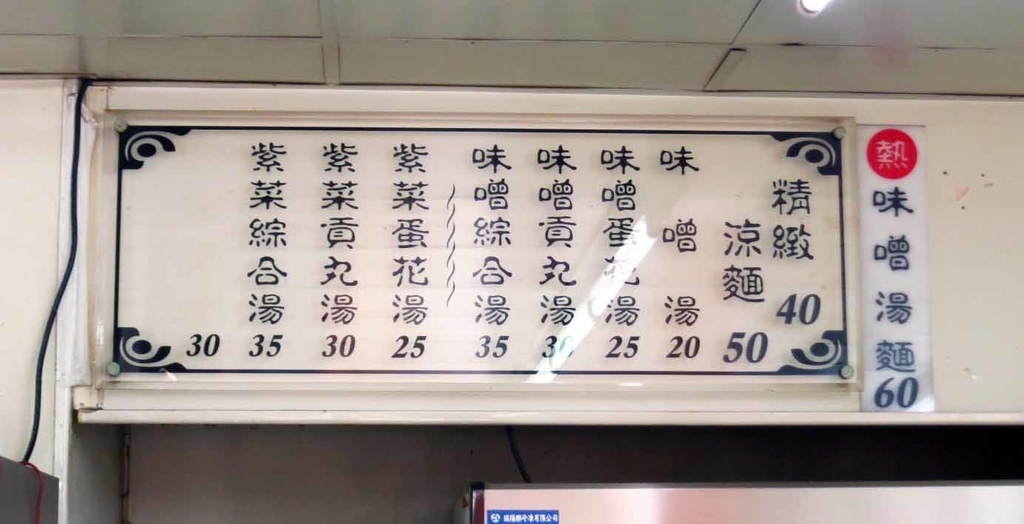 精緻涼麵
40
50
味噌湯 20
味噌蛋花湯 25
味噌貢丸湯 30
味噌綜合湯 35
紫菜蛋花湯 25
紫菜貢丸湯 30
紫菜綜合湯 35
30
熱味噌湯麵 60